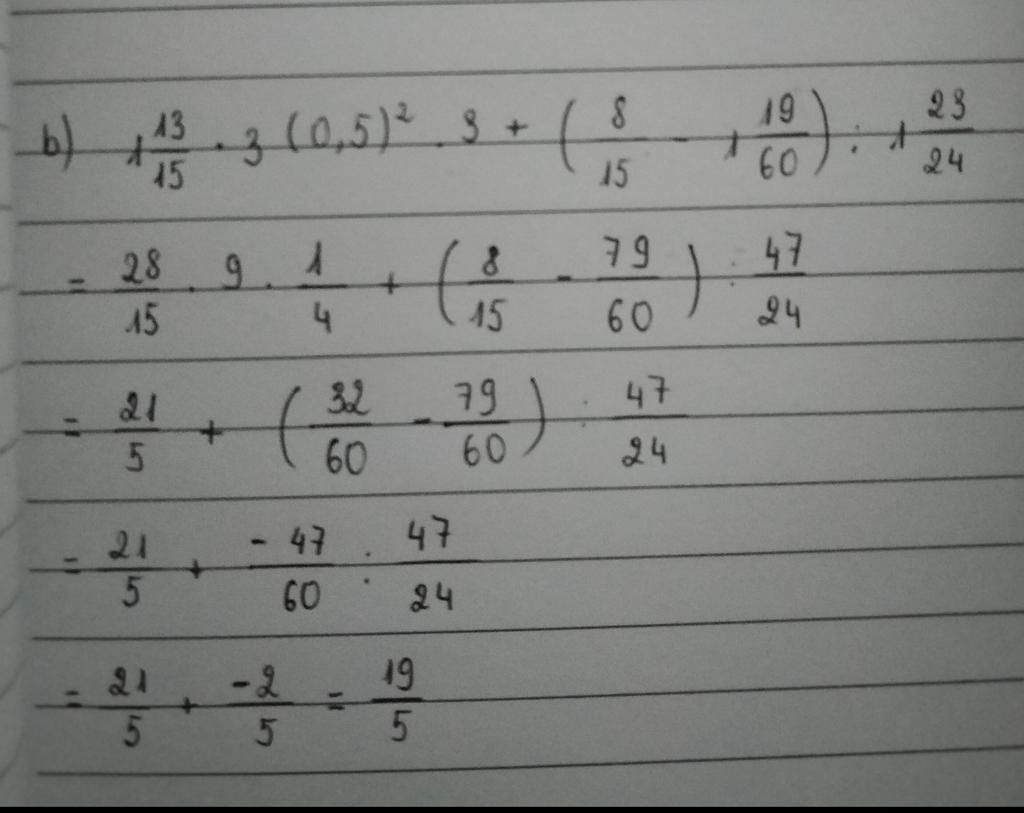 b) 1 13/15 . 3 (0,5)² . 3 + (8/15 - 1 19/60) : 1 23/24
= 28/15 . 9 . 1/4 + (8/15 - 79/60) : 47/24
= 21/5 + (32/60 - 79/60) : 47/24
= 21/5 + -47/60 : 47/24
= 21/5 + -2/5 = 19/5